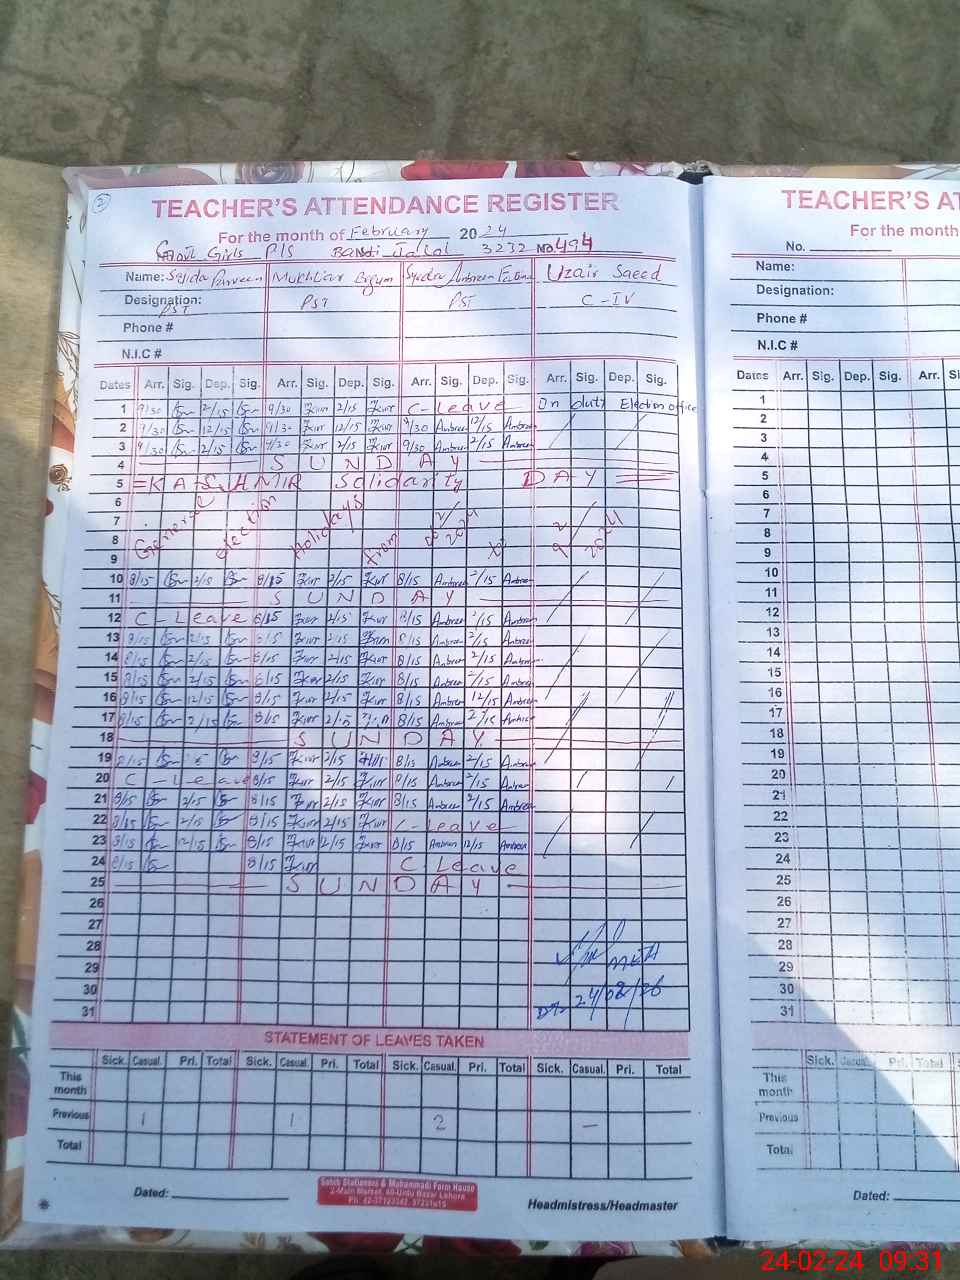 2
TEACHER'S ATTENDANCE REGISTER
For the month of February 2024
Govt Girls P/S Bandi Jalal 3232 No. 494
Name: Sajida Parveen Mukhtiar Begum Syeda Ambreen Fatima Uzair Saeed
Designation: PST PST PST C-IV
Phone #
N.I.C #
Dates Arr. Sig. Dep. Sig. Arr. Sig. Dep. Sig. Arr. Sig. Dep. Sig. Arr. Sig. Dep. Sig.
1 9/30 2/15 9/30 2/15 C-Leave On duty Election office
2 9/30 12/15 9/30 12/15 9/30 Ambreen 12/15 Ambreen
3 9/30 2/15 9/30 2/15 9/30 Ambreen 2/15 Ambreen
4 SUNDAY
5 KASHMIR Solidarity DAY
6
7 General Election Holidays from to 9/2/2024
8
9
10 8/15 2/15 8/15 2/15 8/15 Ambreen 2/15 Ambreen
11 SUNDAY
12 C-Leave 8/15 2/15 8/15 Ambreen 2/15 Ambreen
13 8/15 2/15 8/15 2/15 8/15 Ambreen 2/15 Ambreen
14 8/15 2/15 8/15 2/15 8/15 Ambreen 2/15 Ambreen
15 8/15 2/15 8/15 2/15 8/15 Ambreen 2/15 Ambreen
16 8/15 12/15 8/15 2/15 8/15 Ambreen 12/15 Ambreen
17 8/15 2/15 8/15 2/15 8/15 Ambreen 2/15 Ambreen
18 SUNDAY
19 8/15 8/15 2/15 8/15 Ambreen 2/15 Ambreen
20 C-Leave 8/15 2/15 8/15 Ambreen 2/15 Ambreen
21 8/15 2/15 8/15 2/15 8/15 Ambreen 2/15 Ambreen
22 8/15 2/15 8/15 2/15 C-Leave
23 8/15 12/15 8/15 12/15 8/15 Ambreen 12/15 Ambreen
24 8/15 8/15 C Leave
25 SUNDAY
26
27
28
29
30
31
STATEMENT OF LEAVES TAKEN
Sick. Casual. Pri. Total Sick. Casual. Pri. Total Sick. Casual. Pri. Total Sick. Casual. Pri. Total
This month
Previous 1 1 2 –
Total
Dated:
Sohib Stationers & Muhammadi Form House
2-Main Market, 40-Urdu Bazar Lahore
Headmistress/Headmaster
TEACHER'S AT
For the month
No.
Name:
Designation:
Phone #
N.I.C #
Dates Arr. Sig. Dep. Sig. Arr. Si
1
2
3
4
5
6
7
8
9
10
11
12
13
14
15
16
17
18
19
20
21
22
23
24
25
26
27
28
29
30
31
Sick. Casual. Pri. Total
This month
Previous
Total
Dated:
24-02-24 09:31